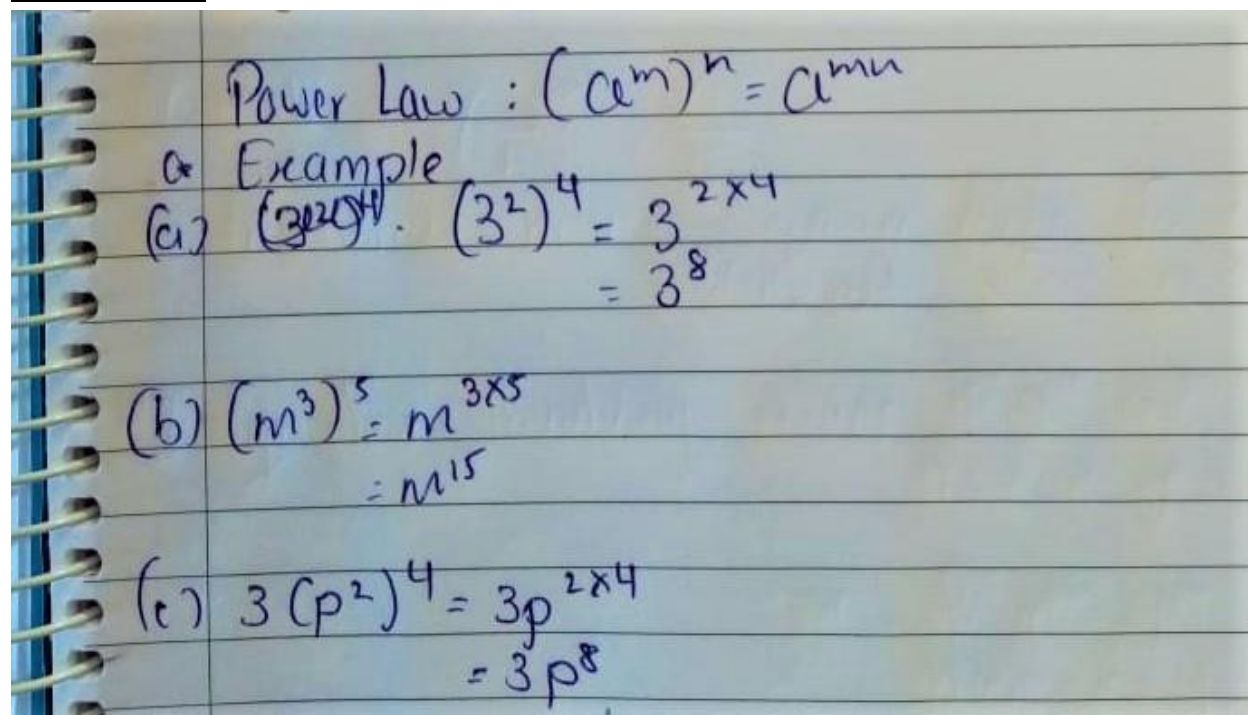 Power Law : (a^m)^n = a^mn
Example
(a) (3²)⁴ = 3^2×4
= 3⁸
(b) (m³)⁵ = m^3×5
= m¹⁵
(c) 3(p²)⁴ = 3p^2×4
= 3p⁸